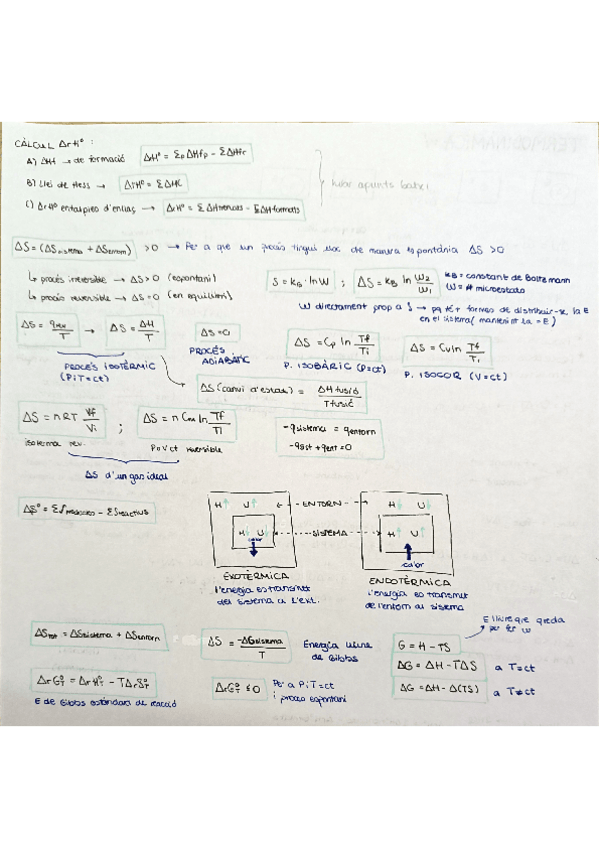 CÀLCUL ΔrHº:
A) ΔH → de formació ΔHº = Σp ΔHfp - ΣΔHfr
B) Llei de Hess → ΔrHº = ΣΔHc
C) ΔrHº entalpies d'enllaç → ΔrHº = ΣΔHtrencats - ΣΔHformats
apunts batxi
ΔS = (ΔSsistema + ΔSentorn) >0 → Per a que un procés tingui lloc de manera espontània ΔS >0
↳ procés irreversible → ΔS>0 (espontani)
↳ procés reversible → ΔS=0 (en equilibri)
S = kB · ln W ; ΔS = kB ln W2/W1
kB = constant de Boltzmann
W = # microestats
W directament prop a S → pq té + formes de distribuir-se la E
en el sistema (mantenint la = E)
ΔS = qrev/T → ΔS = ΔH/T
PROCÉS ISOTÈRMIC
(P i T=ct)
ΔS=0
PROCÉS
ADIABÀTIC
ΔS = Cp ln Tf/Ti
P. ISOBÀRIC (P=ct)
ΔS = Cv ln Tf/Ti
P. ISOCOR (V=ct)
ΔS (canvi d'estat) = ΔHfusió/Tfusió
ΔS = nRT Vf/Vi ;
isoterma rev.
ΔS = n Cm ln Tf/Ti
P o V ct reversible
ΔS d'un gas ideal
-qsistema = qentorn
-qsist + qent = 0
ΔSº = ΣSproductes - ΣSreactius
H↑ U↑ ← ENTORN → H↓ U↓
H↓ U↓ ← SISTEMA → H↑ U↑
calor
calor
EXOTÈRMICA
l'energia es transmet
del sistema a l'ext.
ENDOTÈRMICA
l'energia es transmet
de l'entorn al sistema
E lliure que queda
per fer W
ΔStot = ΔSsistema + ΔSentorn
ΔS = -ΔGsistema/T
Energia lliure
de Gibbs
G = H - TS
ΔG = ΔH - TΔS a T=ct
ΔG = ΔH - Δ(TS) a T≠ct
ΔrGºT = ΔrHºT - TΔrSºT
E de Gibbs estàndard de reacció
ΔrGºT ≤ 0
Per a P i T=ct
i procés espontani